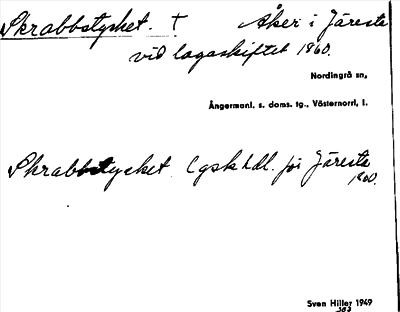 Skrabbstycket. † Åker i Järesta
vid lagaskiftet 1860.
Nordingrå sn,
Ångermanl. s. doms. tg., Västernorrl, l.
Skrabbstycket Lgsk hdl. för Järesta
1860.
Sven Hiller 1949